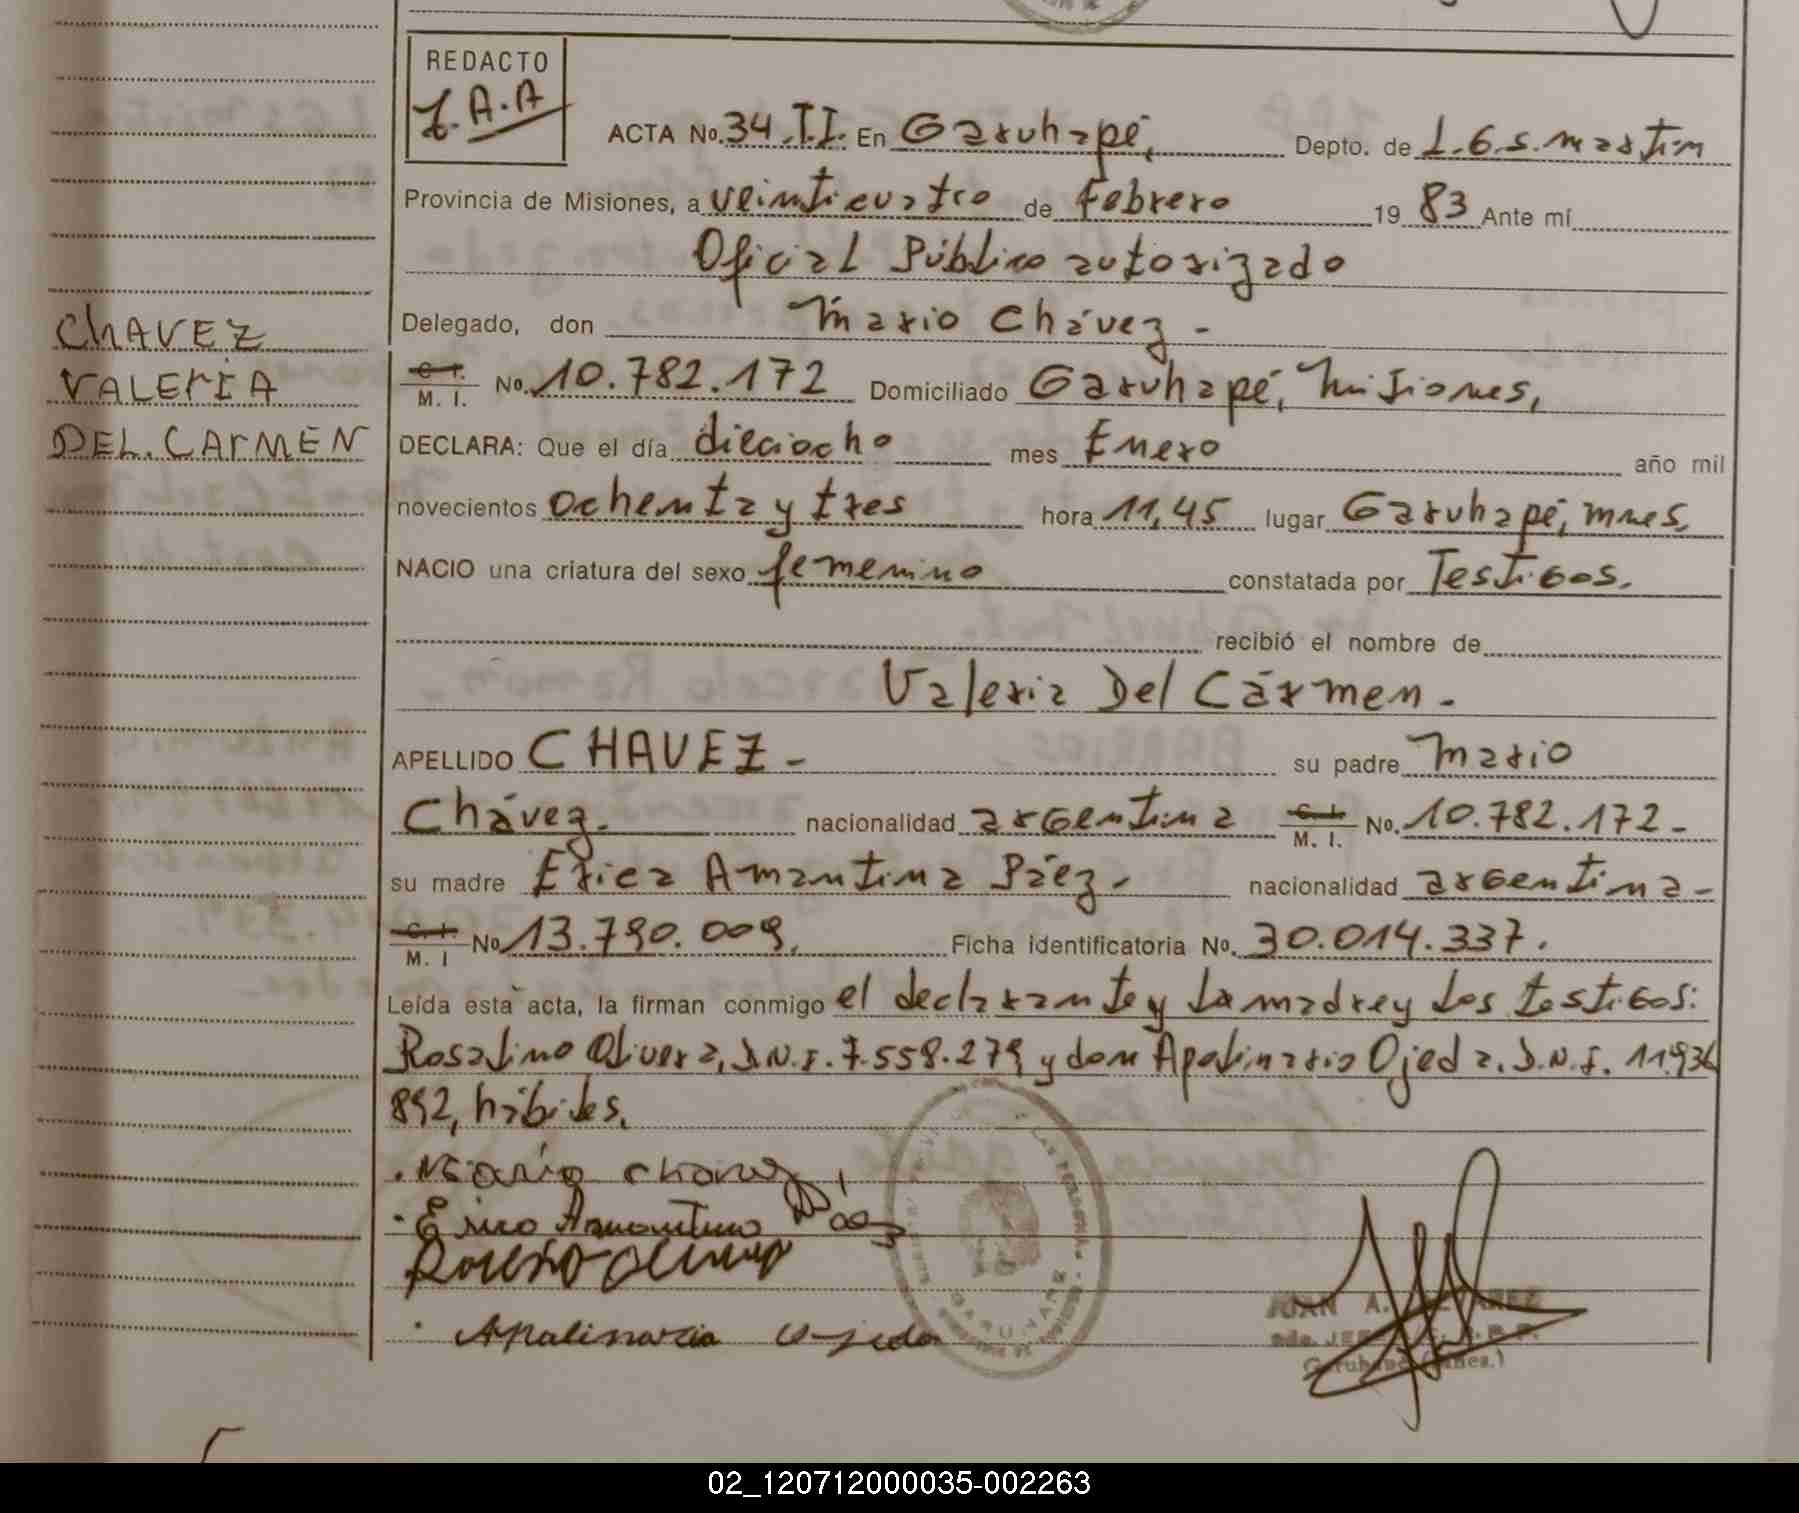 REDACTO
J.A.A
ACTA No. 34 .T.I. En Garuhapé, Depto. de L.G.S. martin
Provincia de Misiones, a veinticuatro de Febrero 19 83 Ante mí
Oficial Público autorizado
Delegado, don Mario Chávez -
C. I. M. I. No. 10.782.172 Domiciliado Garuhapé, Misiones,
DECLARA: Que el día dieciocho mes Enero año mil
novecientos ochenta y tres hora 11,45 lugar Garuhapé, mnes,
NACIO una criatura del sexo femenino constatada por Testigos.
recibió el nombre de
Valeria Del Cármen -
APELLIDO CHAVEZ - su padre Mario
Chávez. nacionalidad argentina C. I. M. I. No. 10.782.172 -
su madre Erica Amantina Páez - nacionalidad argentina -
C. I. M. I No 13.790.009, Ficha identificatoria No. 30.014.337.
Leída esta acta, la firman conmigo el declarante y la madre y los testigos:
Rosalino Olivera, D.N.I. 7.558.279 y don Apolinario Ojeda, D.N.I. 11.936
892, hábiles.
CHAVEZ
VALERIA
DEL. CARMEN
Mario Chavez
Erica Amantina Páez
Apalinario Ojeda
GARUHAPE
JUAN A.
Garuhapé (Mnes.)
02_120712000035-002263